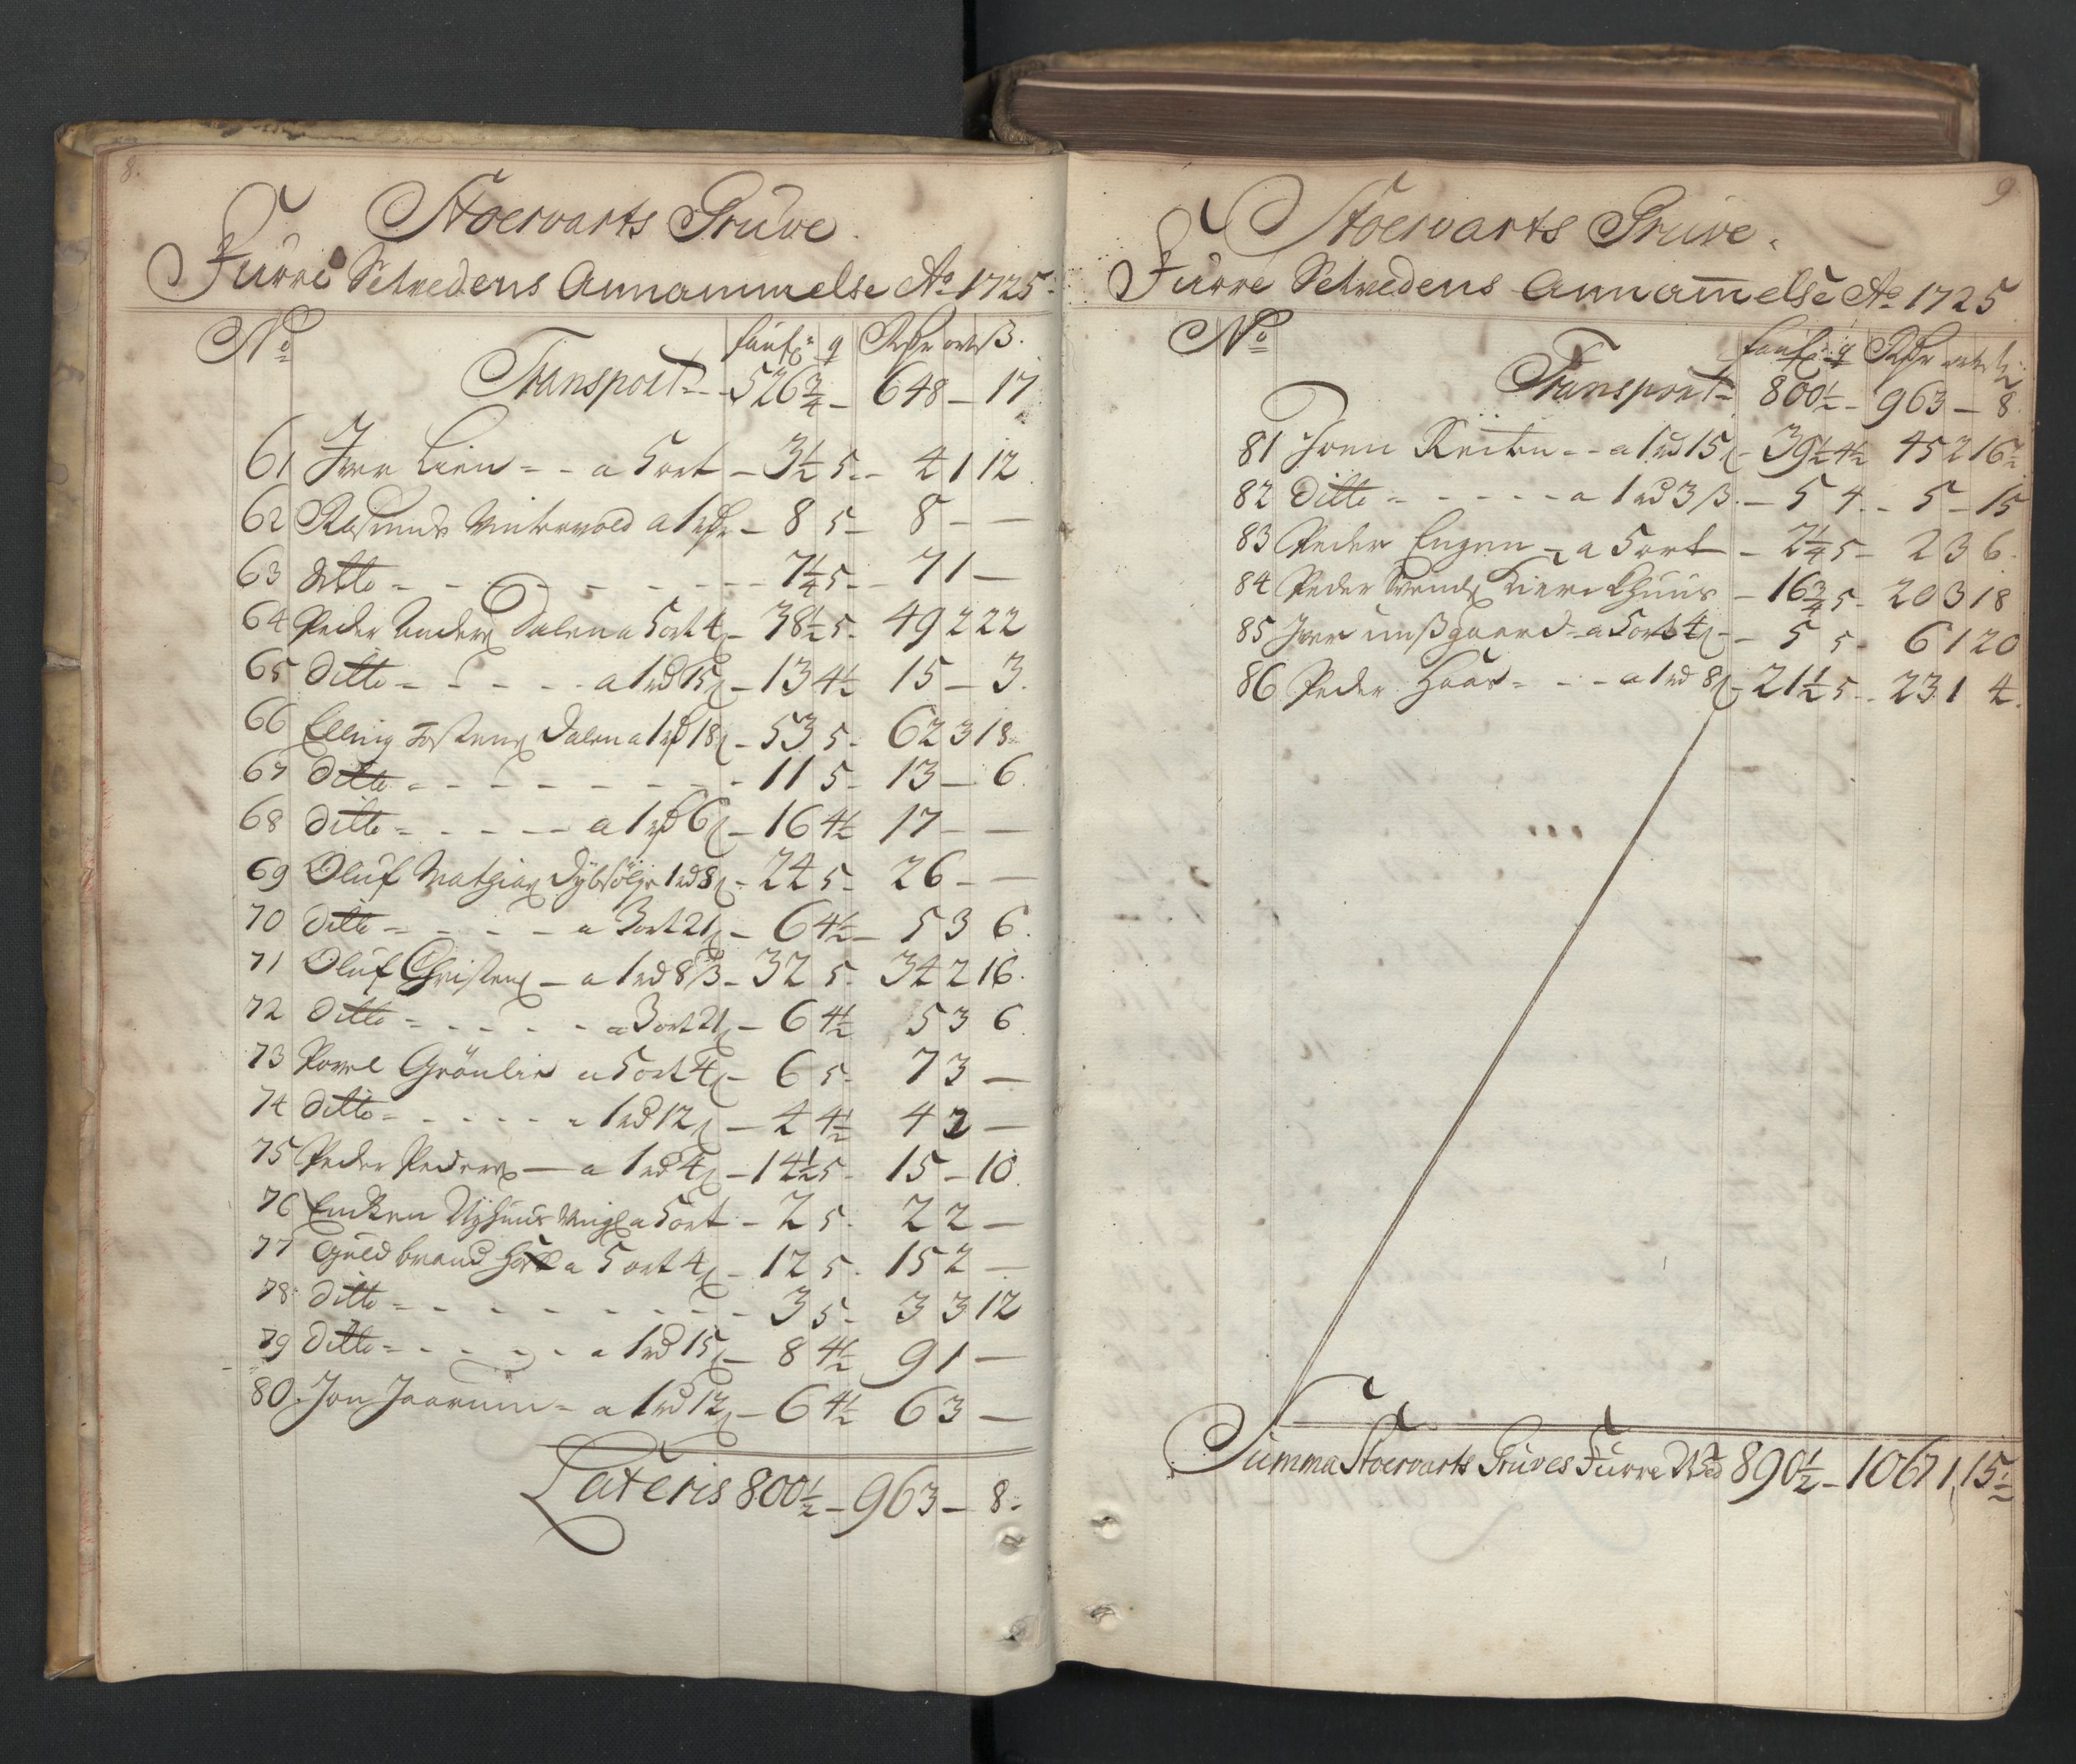 8.
Stoervarts Gruve.
Furre Setvedens Annammelse Ao 1725.
No fauf: q Rdr ort ß.
Transport - 526 3/4 - 648 - 17
61 Iver Lien - - a 5 ort - 3 1/2 5 - 4 1 12
62 Rasmus Wintervold a 1 rdr - 8 5 - 8 - -
63 ditto - - - - - - 7 1/4 5 - 7 1 -
64 Peder Anders Dalen a 5 ort 4 ß - 38 1/2 5 - 49 2 22
65 ditto - - - - a 1 rd 15 ß - 13 4 1/2 15 - 3.
66 Elling Dalen a 1 rd 18 ß - 53 5 - 62 3 18.
67 ditto - - - - - - 11 5 - 13 - 6.
68 ditto - - - - a 1 rd 6 ß - 16 4 1/2 17 - -
69 Oluf Matzias 1 rd 8 ß - 24 5 - 26 - -
70 ditto - - - - a 3 ort 21 ß - 6 4 1/2 - 5 3 6.
71 Oluf Christens - a 1 rd 8 ß - 32 5 - 34 2 16.
72 ditto - - - - a 3 ort 21 ß - 6 4 1/2 5 3 6.
73 Povel Grönlie a 5 ort 4 ß - 6 5 - 7 3 -
74 ditto - - - - a 1 rd 12 ß - 4 4 1/2 4 2 -
75 Peder Peders - a 1 rd 4 ß - 14 1/2 5 - 15 - 10.
76 Nyhuus a 5 ort - 2 5 - 2 2 -
77 Guldbrand a 5 ort 4 ß - 12 5 - 15 2 -
78 ditto - - - - - - 3 5 - 3 3 12
79 ditto - - - - a 1 rd 15 ß - 8 4 1/2 9 1 -
80. Jon Jaarum - a 1 rd 12 ß - 6 4 1/2 6 3 -
Lateris 800 1/2 - 963 - 8.
9
Stoervarts Gruve.
Furre Setvedens Annam̅else Ao 1725
No fauf: q Rdr ort ß
Transport - 800 1/2 - 963 - 8.
81 Joen Reiten - - a 1 rd 15 ß - 39 1/2 4 1/2 45 2 16 1/2
82 Ditto - - - - a 1 rd 3 ß. - 5 4 - 5 - 15
83 Peder Engen - a 5 ort - 2 1/4 5 - 2 3 6.
84 Peder Svends - 16 3/4 5 - 20 3 18
85 Iver a 5 ort 4 ß - 5 5 - 6 1 20
86 Peder Haar - - - a 1 rd 8 ß - 21 1/2 5 - 23 1 4.
Summa Stoervarts Gruves Furre Wed 890 1/2 - 1067 1, 15 1/2